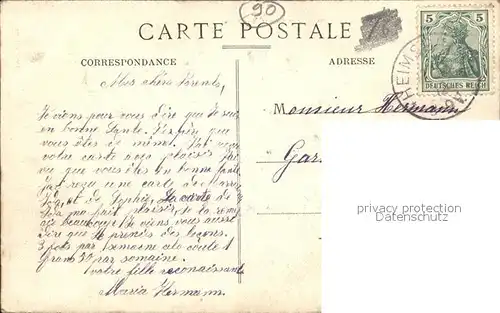 90
CARTE POSTALE
CORRESPONDANCE
ADRESSE
5 5
DEUTSCHES REICH
HEIMS
Mes chers Parents,
Je viens pour vous dire que Je suis
en bonne Sante. J'espère que
vous êtes de même.
votre carte avec plaisir j'ai
vu que vous êtes en bonne sante
J'ai reçu une carte de
et de Sophie, La carte de
ma fait plaisir, de la
beaucoup! Je viens vous aussi
dire que Je prends des leçons.
3 fois par semaine cela coute 1
Grand 30 par semaine.
votre fille reconaissante
Maria Hermann.
Monsieur Hermann
Gar
privacy protection
Datenschutz